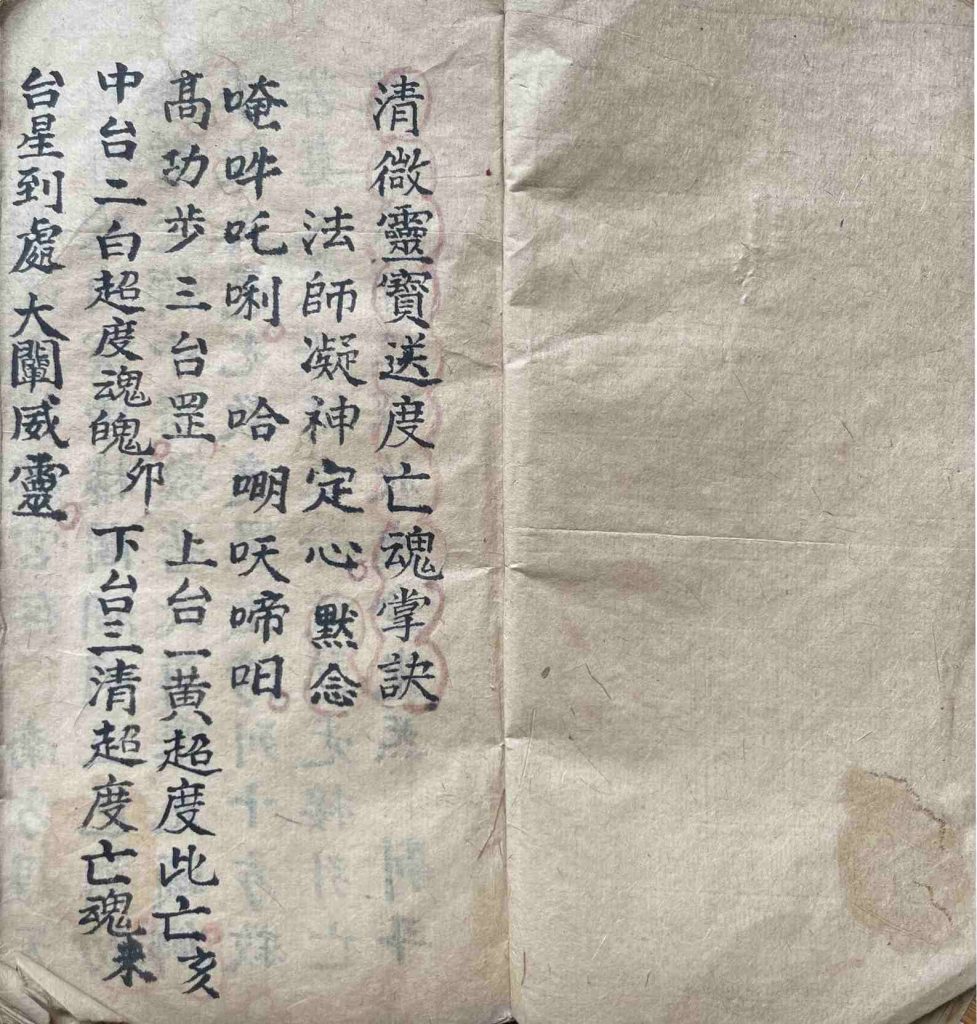 清微靈寶送度亡魂掌訣
法師凝神定心默念
唵吽吒唎 哈㗂吠啼呾
髙功步三台罡 上台一黄超度此亡亥
中台二白超度魂魄卯 下台三清超度亡魂未
台星到處大闡威靈